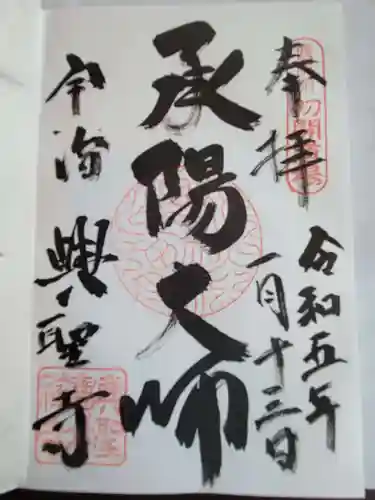 奉拝
令和五年
一月十三日
承陽大師
宇治 興聖寺